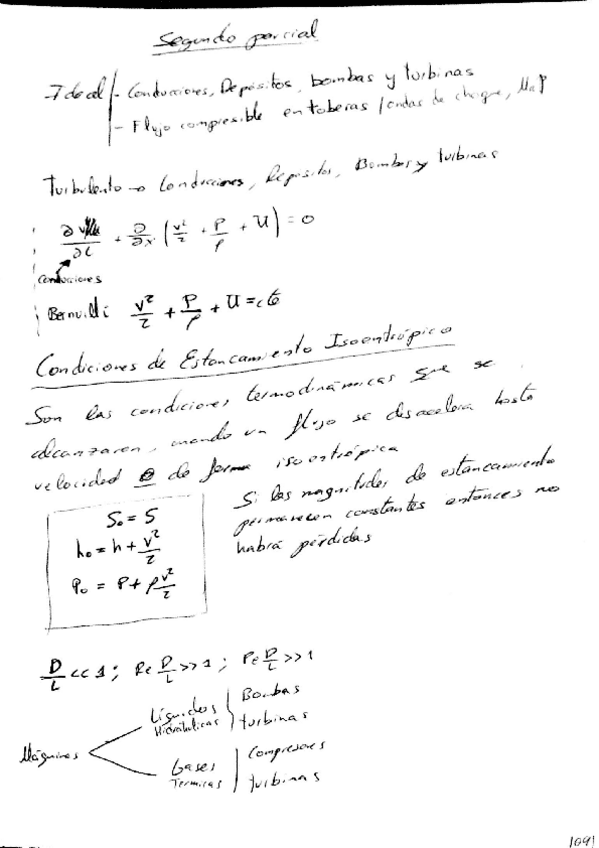 Segundo parcial
→ Ideal - Conducciones, Depósitos, bombas y turbinas
- Flujo compresible en toberas / ondas de choque, Ma↑
Turbulento → Conducciones, Depósitos, Bombas y turbinas
∂v/∂t + ∂/∂x (v²/2 + P/ρ + U) = 0
Conducciones
Bernuilli v²/2 + P/ρ + U = cte
Condiciones de Estancamiento Isoentrópico
Son las condiciones termodinámicas que se
alcanzaren, cuando un flujo se desacelera hasta
velocidad 0 de forma isoentrópica
Si las magnitudes de estancamiento
permanecen constantes entonces no
habrá pérdidas
S₀ = S
h₀ = h + v²/2
P₀ = P + ρ v²/2
D/L << 1; Re D/L >> 1; Pe D/L >> 1
Máquinas
Líquidos Hidráulicas
Bombas
turbinas
Gases Termicas
Compresores
turbinas
109